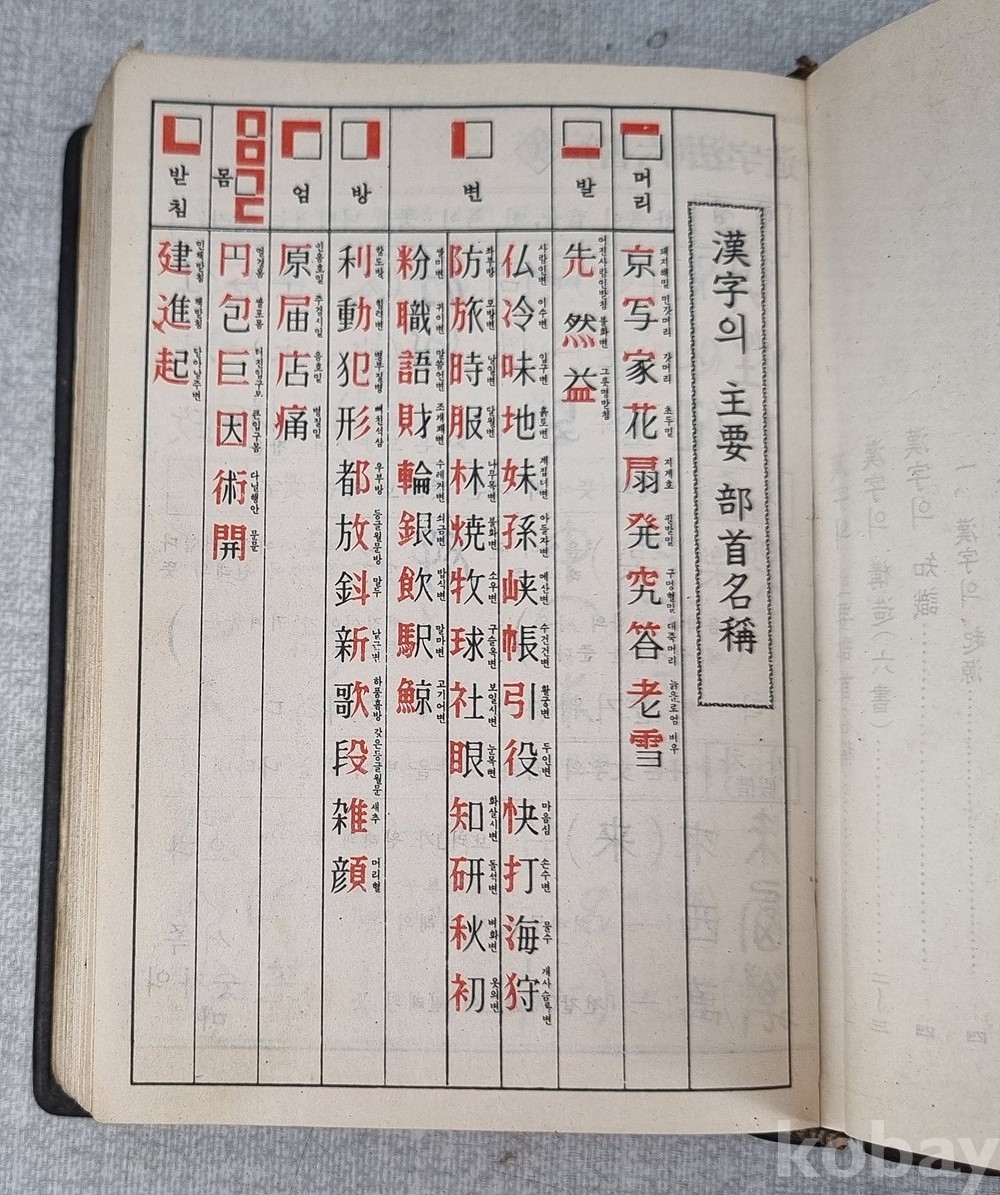 漢字의 主要 部首名稱
머리
京 돼지해밑
写 민갓머리
家 갓머리
花 초두밑
扇 지게호
発 필발밑
究 구멍혈밑
答 대죽머리
老 늙을로엄
雪 비우
발
先 어진사람인받침
然 불화변
益 그릇명받침
변
仏 사람인변
冷 이수변
味 입구변
地 흙토변
妹 계집녀변
孫 아들자변
峡 메산변
帳 수건건변
引 활궁변
役 두인변
快 마음심
打 손수변
海 물수
狩 개사슴록변
防 좌부방
旅 모방변
時 날일변
服 달월변
林 나무목변
焼 불화변
牧 소우변
球 구슬옥변
社 보일시변
眼 눈목변
知 화살시변
研 돌석변
秋 벼화변
初 옷의변
粉 쌀미변
職 귀이변
語 말씀언변
財 조개패변
輪 수레거변
銀 쇠금변
飲 밥식변
駅 말마변
鯨 고기어변
방
利 칼도방
動 힘력변
犯 병부절병
形 삐친석삼
都 우부방
放 등글월문방
斜 말두
新 날근변
歌 하품흠방
段 갖은등글월문
雑 새추
顔 머리혈
엄
原 민음호밑
届 주검시밑
店 음호밑
痛 병질밑
몸
円 멀경몸
包 쌀포몸
巨 터진입구모
因 큰입구몸
術 다닐행안
開 문문
받침
建 민책받침
進 책받침
起 달아날주변
kobay